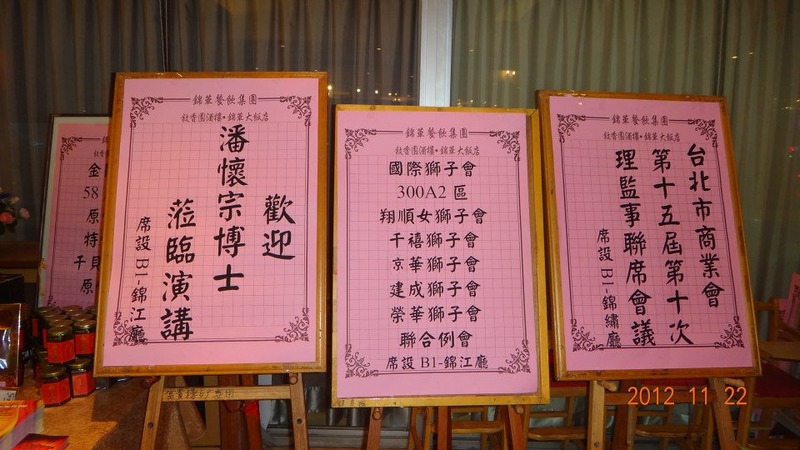 金
58
原
特
千貝
原
錦華餐飲集團
敘香園酒樓・錦華大飯店
歡迎
潘懷宗博士
蒞臨演講
席設 B1-錦江廳
錦華餐飲集團
敘香園酒樓・錦華大飯店
國際獅子會
300A2 區
翔順女獅子會
千禧獅子會
京華獅子會
建成獅子會
榮華獅子會
聯合例會
席設 B1-錦江廳
錦華餐飲集團
敘香園酒樓・錦華大飯店
台北市商業會
第十五屆第十次
理監事聯席會議
席設 B1-錦繡廳
2012 11 22